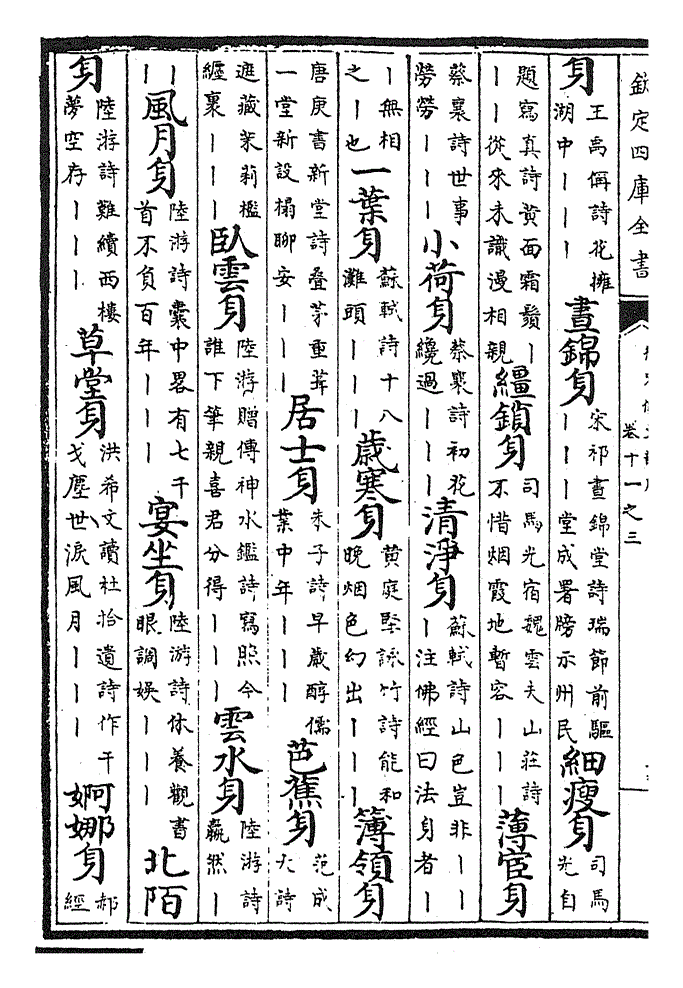 欽定四庫全書
卷十一之三
身王禹偁詩花擁湖中丨丨丨晝錦身宋祁晝錦堂詩瑞節前驅丨丨丨堂成署牓示州民細瘦身司馬光自
題寫真詩黄面霜鬚丨丨丨從來未識漫相親繮鎖身司馬光宿魏雲夫山莊詩不惜烟霞地暫容丨丨丨薄宦身
蔡襄詩世事勞勞丨丨丨小荷身蔡襄詩初花纔過丨丨丨清淨身蘇軾詩山色豈非丨丨丨注佛經曰法身者丨
丨無相之丨也一葉身蘇軾詩十八灘頭丨丨丨歲寒身黄庭堅詠竹詩能和晚烟色幻出丨丨丨簿領身
唐庚書新堂詩叠茅重葺一堂新設榻聊安丨丨丨居士身朱子詩早歲醇儒業中年丨丨丨芭蕉身范成大詩
遮藏茉莉檻纏裹丨丨丨臥雲身陸游贈傳神水鑑詩寫照今誰下筆親喜君分得丨丨丨雲水身陸游詩羸然丨
丨丨風月身陸游詩囊中畧有七千首不負百年丨丨丨宴坐身陸游詩休養觀書眼調娛丨丨丨北陌
身陸游詩難續西樓夢空存丨丨丨草堂身洪希文讀杜拾遺詩作干戈塵世淚風月丨丨丨婀娜身郝經